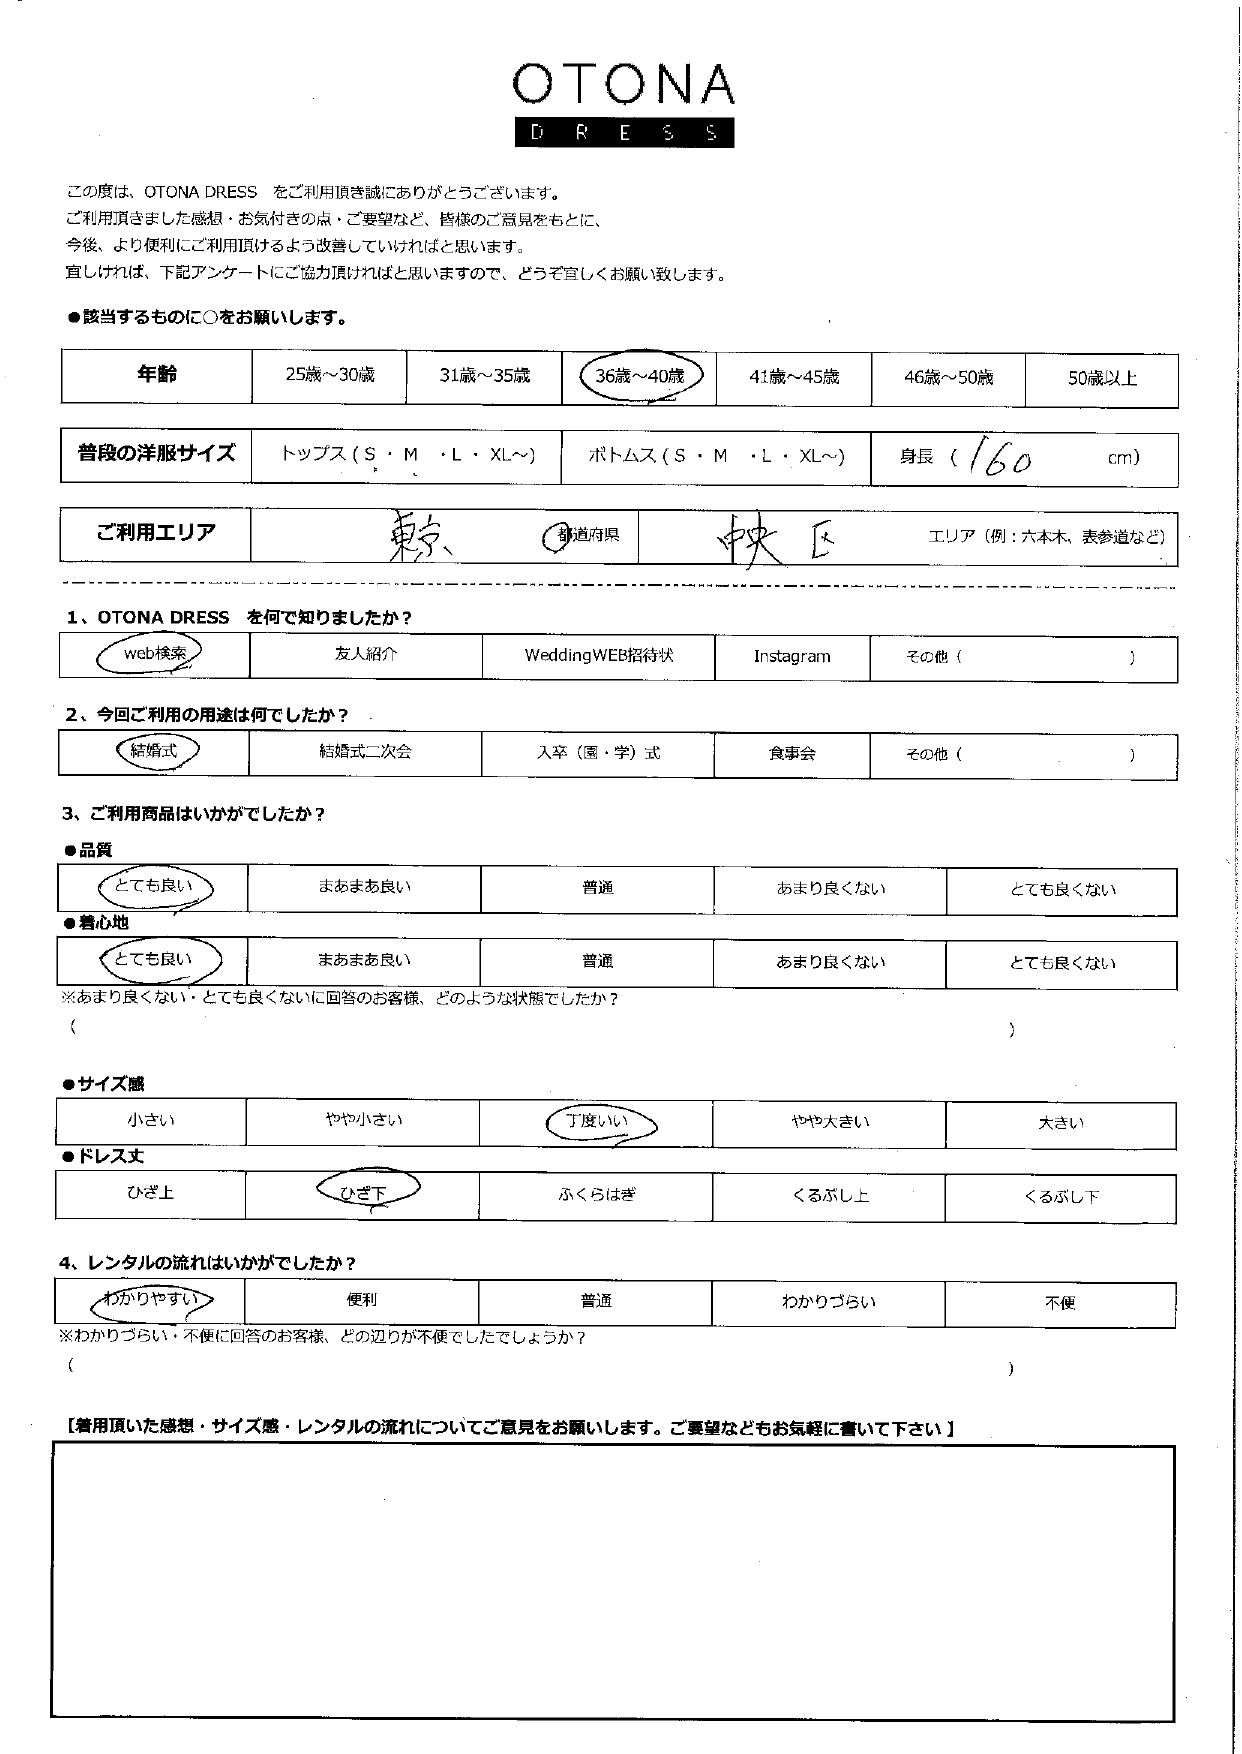 OTONA
DRESS
この度は、OTONA DRESS　をご利用頂き誠にありがとうございます。
ご利用頂きました感想・お気付きの点・ご要望など、皆様のご意見をもとに、
今後、より便利にご利用頂けるよう改善していければと思います。
宜しければ、下記アンケートにご協力頂ければと思いますので、どうぞ宜しくお願い致します。
●該当するものに〇をお願いします。
年齢 25歳～30歳 31歳～35歳 36歳～40歳 41歳～45歳 46歳～50歳 50歳以上
普段の洋服サイズ トップス ( S ・ M ・L ・ XL～) ボトムス ( S ・ M ・L ・ XL～) 身長 ( 160 cm)
ご利用エリア 東京 都道府県 中央区 エリア（例：六本木、表参道など）
1、OTONA DRESS　を何で知りましたか？
web検索 友人紹介 WeddingWEB招待状 Instagram その他 ( )
2、今回ご利用の用途は何でしたか？
結婚式 結婚式二次会 入卒（園・学）式 食事会 その他 ( )
3、ご利用商品はいかがでしたか？
●品質
とても良い まあまあ良い 普通 あまり良くない とても良くない
●着心地
とても良い まあまあ良い 普通 あまり良くない とても良くない
※あまり良くない・とても良くないに回答のお客様、どのような状態でしたか？
( )
●サイズ感
小さい やや小さい 丁度いい やや大きい 大きい
●ドレス丈
ひざ上 ひざ下 ふくらはぎ くるぶし上 くるぶし下
4、レンタルの流れはいかがでしたか？
わかりやすい 便利 普通 わかりづらい 不便
※わかりづらい・不便に回答のお客様、どの辺りが不便でしたでしょうか？
( )
【着用頂いた感想・サイズ感・レンタルの流れについてご意見をお願いします。ご要望などもお気軽に書いて下さい】